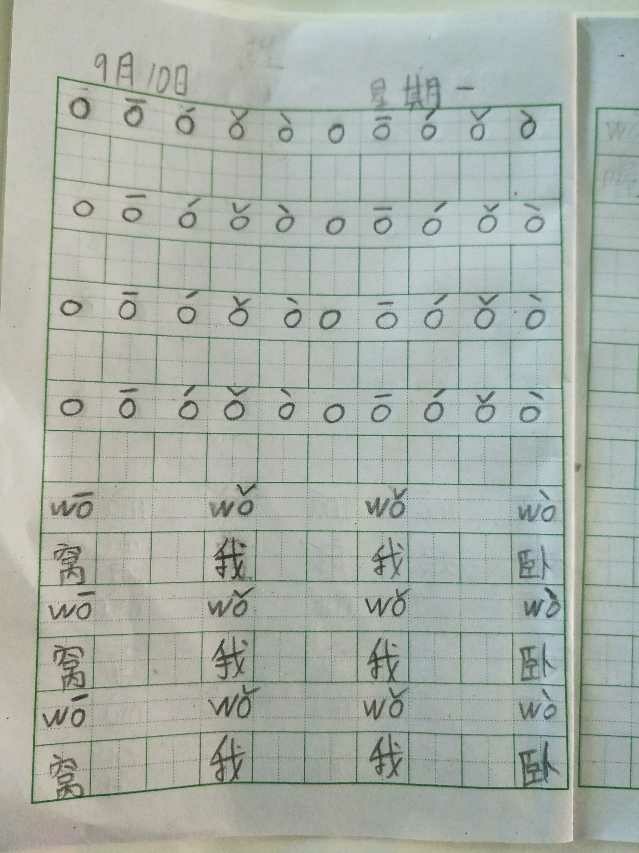 9月10日 星期一
o ō ó ǒ ò o ō ó ǒ ò
o ō ó ǒ ò o ō ó ǒ ò
o ō ó ǒ ò o ō ó ǒ ò
o ō ó ǒ ò o ō ó ǒ ò
wō wǒ wǒ wò
窝 我 我 卧
wō wǒ wǒ wò
窝 我 我 卧
wō wǒ wǒ wò
窝 我 我 卧